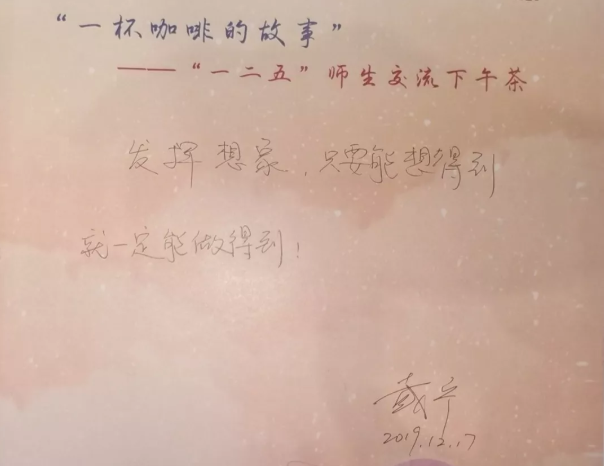 “一杯咖啡的故事”
——“一二五”师生交流下午茶
发挥想象，只要能想得到
就一定能做得到！
戴宁
2019.12.17